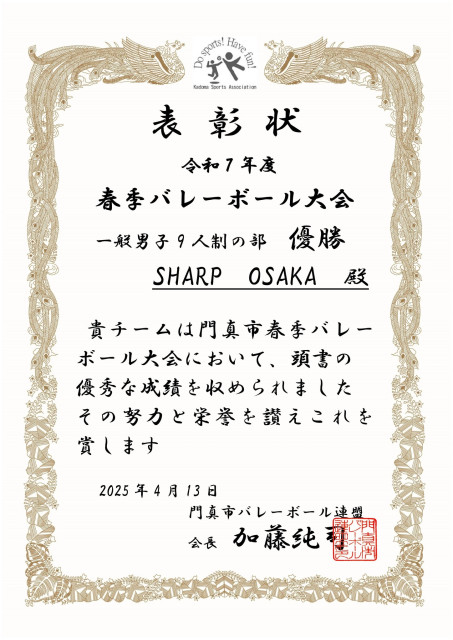 Do sports! Have fun!
Kadoma Sports Association
表彰状
令和7年度
春季バレーボール大会
一般男子9人制の部 優勝
SHARP OSAKA 殿
貴チームは門真市春季バレー
ボール大会において、頭書の
優秀な成績を収められました
その努力と栄誉を讃えこれを
賞します
2025年4月13日
門真市バレーボール連盟
会長 加藤純司